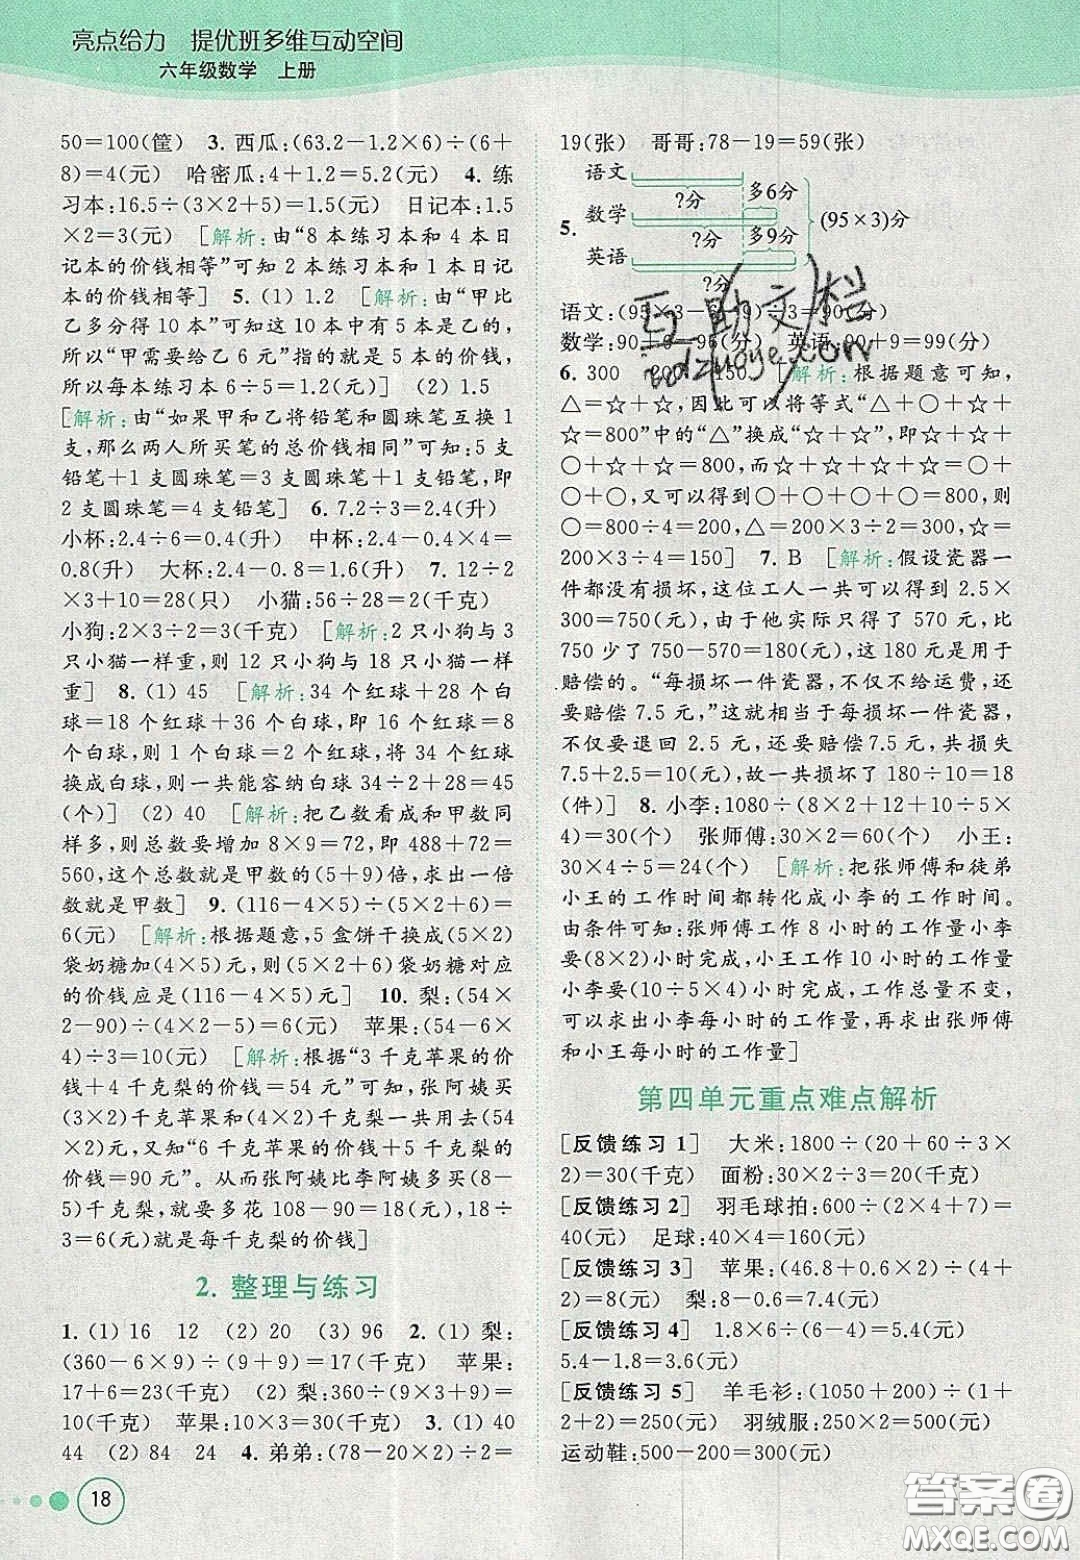 亮点给力 提优班多维互动空间
六年级数学 上册
50=100(筐) 3. 西瓜:(63.2-1.2×6)÷(6+
8)=4(元) 哈密瓜:4+1.2=5.2(元) 4. 练
习本:16.5÷(3×2+5)=1.5(元) 日记本:1.5
×2=3(元) [解析:由“8本练习本和4本日
记本的价钱相等”可知2本练习本和1本日记
本的价钱相等] 5. (1) 1.2 [解析:由“甲比
乙多分得10本”可知这10本中有5本是乙的,
所以“甲需要给乙6元”指的就是5本的价钱,
所以每本练习本6÷5=1.2(元)] (2) 1.5
[解析:由“如果甲和乙将铅笔和圆珠笔互换1
支,那么两人所买笔的总价钱相同”可知:5支
铅笔+1支圆珠笔=1支铅笔+3支圆珠笔,即
2支圆珠笔=4支铅笔] 6. 7.2÷3=2.4(升)
小杯:2.4÷6=0.4(升) 中杯:2.4-0.4×4=
0.8(升) 大杯:2.4-0.8=1.6(升) 7. 12÷2
×3+10=28(只) 小猫:56÷28=2(千克)
小狗:2×3÷2=3(千克) [解析:2只小狗与3
只小猫一样重,则12只小狗与18只小猫一样
重] 8. (1) 45 [解析:34个红球+28个白
球=18个红球+36个白球,即16个红球=8
个白球,则1个白球=2个红球,将34个红球
换成白球,则一共能容纳白球34÷2+28=45
(个)] (2) 40 [解析:把乙数看成和甲数同
样多,则总数增加8×9=72,即488+72=
560,这个总数就是甲数的(5+9)倍,求出一倍
数就是甲数] 9. (116-4×5)÷(5×2+6)=
6(元) [解析:根据题意,5盒饼干换成(5×2)
袋奶糖加(4×5)元,则(5×2+6)袋奶糖对应
的价钱应是(116-4×5)元] 10. 梨:(54
×2-90)÷(4×2-5)=6(元) 苹果:(54-6×
4)÷3=10(元) [解析:根据“3千克苹果的价
钱+4千克梨的价钱=54元”可知,张阿姨买
(3×2)千克苹果和(4×2)千克梨一共用去(54
×2)元,又知“6千克苹果的价钱+5千克梨的
价钱=90元”。从而张阿姨比李阿姨多买(8-
5)千克梨,就要多花108-90=18(元),18÷
3=6(元)就是每千克梨的价钱]
2. 整理与练习
1. (1) 16 12 (2) 20 (3) 96 2. (1) 梨:
(360-6×9)÷(9+9)=17(千克) 苹果:
17+6=23(千克) (2) 梨:360÷(9×3+9)=
10(千克) 苹果:10×3=30(千克) 3. (1) 40
44 (2) 84 24 4. 弟弟:(78-20×2)÷2=
18
19(张) 哥哥:78-19=59(张)
5.
语文
?分
多6分
数学
?分
多9分
(95×3)分
英语
?分
语文:(95×3-6-9)÷3=90(分)
数学:90+9=96(分) 英语:90+9=99(分)
6. 300 200 150 [解析:根据题意可知,
△=☆+☆,因此可以将等式“△+○+☆+
☆=800”中的“△”换成“☆+☆”,即☆+☆+
○+☆+☆=800,而☆+☆+☆+☆=○+
○+○,又可以得到○+○+○+○=800,则
○=800÷4=200,△=200×3÷2=300,☆=
200×3÷4=150] 7. B [解析:假设瓷器一
件都没有损坏,这位工人一共可以得到2.5×
300=750(元),由于他实际只得了570元,比
750少了750-570=180(元),这180元是用于
赔偿的。“每损坏一件瓷器,不仅不给运费,还
要赔偿7.5元,”这就相当于每损坏一件瓷器,
不仅要退回2.5元,还要赔偿7.5元,共损失
7.5+2.5=10(元),故一共损坏了180÷10=18
(件)] 8. 小李:1080÷(8×2+12+10÷5×
4)=30(个) 张师傅:30×2=60(个) 小王:
30×4÷5=24(个) [解析:把张师傅和徒弟
小王的工作时间都转化成小李的工作时间。
由条件可知:张师傅工作8小时的工作量小李
要(8×2)小时完成,小王工作10小时的工作量
小李要(10÷5×4)小时完成,工作总量不变,
可以求出小李每小时的工作量,再求出张师傅
和小王每小时的工作量]
第四单元重点难点解析
[反馈练习1] 大米:1800÷(20+60÷3×
2)=30(千克) 面粉:30×2÷3=20(千克)
[反馈练习2] 羽毛球拍:600÷(2×4+7)=
40(元) 足球:40×4=160(元)
[反馈练习3] 苹果:(46.8+0.6×2)÷(4+
2)=8(元) 梨:8-0.6=7.4(元)
[反馈练习4] 1.8×6÷(6-4)=5.4(元)
5.4-1.8=3.6(元)
[反馈练习5] 羊毛衫:(1050+200)÷(1+
2+2)=250(元) 羽绒服:250×2=500(元)
运动鞋:500-200=300(元)
互助文档
zdzuoye.com
答案圈
MXQE.COM